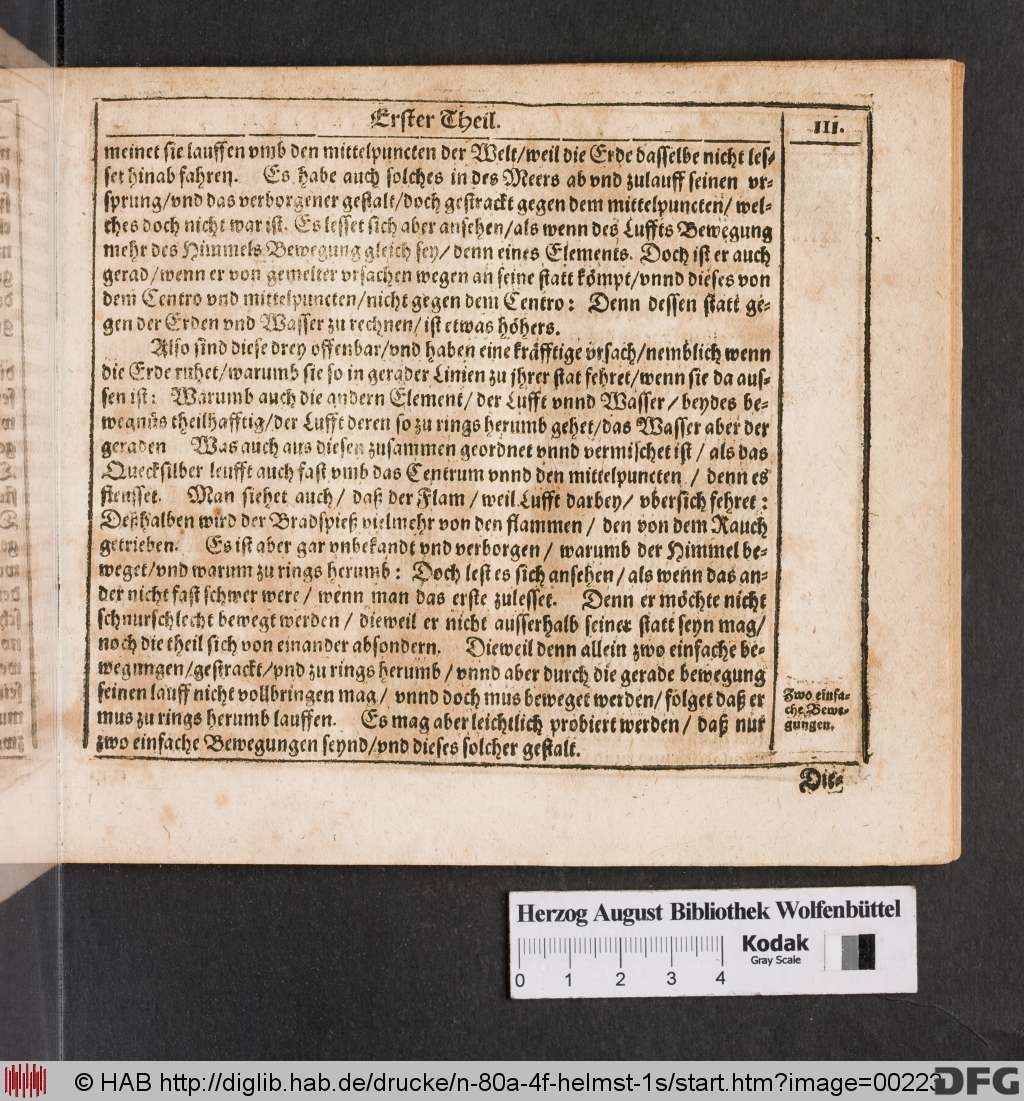 Erster Theil.
III.
meinet sie lauffen vmb den mittelpuncten der Welt/weil die Erde dasselbe nicht les-
set hinab fahren. Es habe auch solches in des Meers ab vnd zulauff seinen vr-
sprung/vnd das verborgener gestalt/doch gestrackt gegen dem mittelpuncten/ wel-
ches doch nicht war ist. Es lesset sich aber ansehen/als wenn des Luffts Bewegung
mehr des Himmels Bewegung gleich sey/ denn eines Elements. Doch ist er auch
gerad/wenn er von gemelter vrsachen wegen an seine statt kömpt/vnnd dieses von
dem Centro vnd mittelpuncten/nicht gegen dem Centro: Denn dessen statt ge-
gen der Erden vnd Wasser zu rechnen/ ist etwas höhers.
Also sind diese drey offenbar/vnd haben eine kräfftige vrsach/nemblich wenn
die Erde ruhet/warumb sie so in gerader Linien zu jhrer stat fehret/wenn sie da aus-
sen ist: Warumb auch die andern Element/ der Lufft vnnd Wasser/ beydes be-
wegnüs theilhafftig/der Lufft deren so zu rings herumb gehet/das Wasser aber der
geraden Was auch aus diesen zusammen geordnet vnnd vermischet ist/ als das
Quecksilber leufft auch fast vmb das Centrum vnnd den mittelpuncten / denn es
fleusset. Man siehet auch/ daß der Flam/ weil Lufft darbey/ vbersich fehret:
Deßhalben wird der Bradspieß vielmehr von den flammen/ den von dem Rauch
getrieben. Es ist aber gar vnbekandt vnd verborgen/ warumb der Himmel be-
weget/vnd warum zu rings herumb: Doch lest es sich ansehen/ als wenn das an-
der nicht fast schwer were/ wenn man das erste zulesset. Denn er möchte nicht
schnurschlecht bewegt werden/ dieweil er nicht ausserhalb seiner statt seyn mag/
noch die theil sich von einander absondern. Dieweil denn allein zwo einfache be-
wegungen/gestrackt/vnd zu rings herumb/ vnnd aber durch die gerade bewegung
seinen lauff nicht vollbringen mag/ vnnd doch mus beweget werden/ folget daß er
mus zu rings herumb lauffen. Es mag aber leichtlich probiert werden/ daß nur
zwo einfache Bewegungen seynd/vnd dieses solcher gestalt.
Zwo einfa-
che Bewe-
gungen.
Die-
Herzog August Bibliothek Wolfenbüttel
Kodak
Gray Scale
0 1 2 3 4
© HAB http://diglib.hab.de/drucke/n-80a-4f-helmst-1s/start.htm?image=00223
DFG